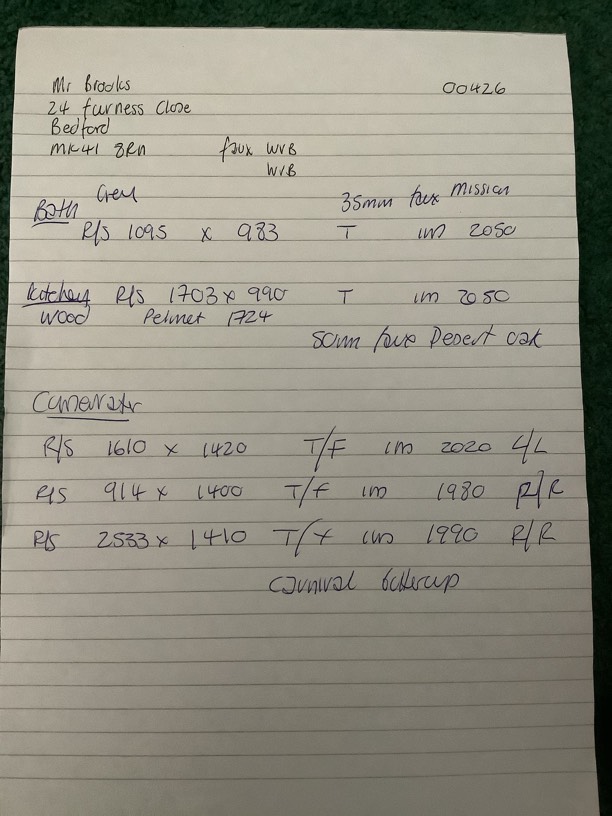 Mr Brooks 00426
24 furness Close
Bedford
MK41 8RN faux WVB
W/B
Grey 35mm faux Mission
Bath
R/S 1095 x 983 T 1m 2050
R/S 1703 x 990 T 1m 2050
wood Pelmet 1724
50mm faux Desert oak
R/S 1610 x 1420 T/F 1m 2020 L/L
R/S 914 x 1400 T/F 1m 1980 R/R
R/S 2533 x 1410 T/F 1m 1990 R/R
Carnival buttercup